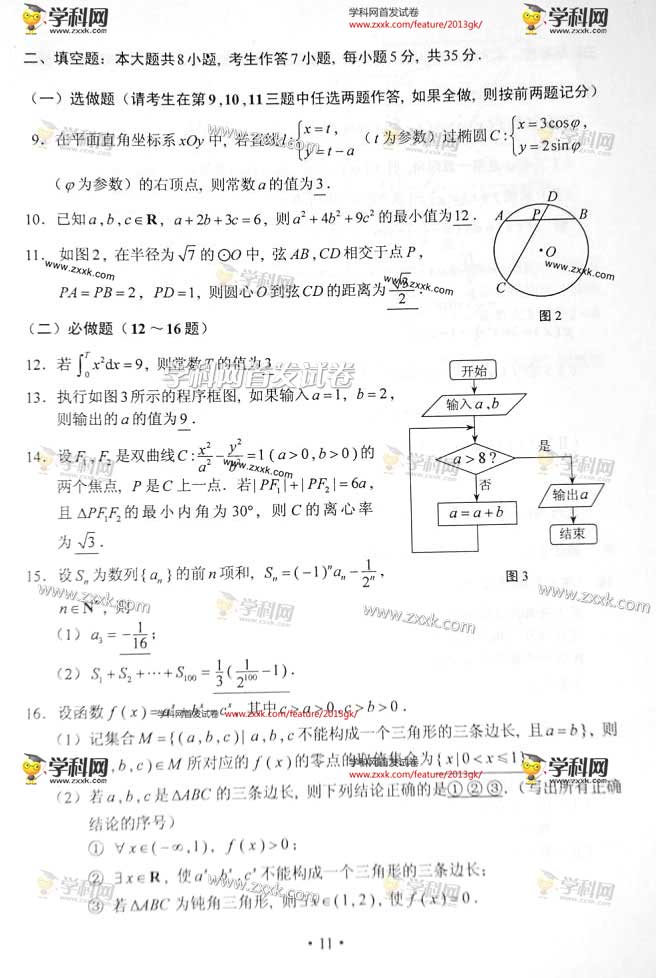 学科网首发试卷
学科网
www.zxxk.com
www.zxxk.com/feature/2013gk/
学科网
www.zxxk.com
二、填空题：本大题共8小题, 考生作答7小题, 每小题5分, 共35分．
（一）选做题（请考生在第9,10,11三题中任选两题作答, 如果全做, 则按前两题记分）
9．在平面直角坐标系xOy中, 若直线l:{x=t, y=t-a （t为参数）过椭圆C:{x=3cosφ, y=2sinφ
（φ为参数）的右顶点, 则常数a的值为3．
10．已知a,b,c∈R, a+2b+3c=6, 则a²+4b²+9c²的最小值为12．
11．如图2, 在半径为√7的⊙O中, 弦AB,CD相交于点P,
PA=PB=2, PD=1, 则圆心O到弦CD的距离为√3/2．
D
A P B
O
C
图2
（二）必做题（12～16题）
12．若∫₀ᵀx²dx=9, 则常数T的值为3
学科网首发试卷
13．执行如图3所示的程序框图, 如果输入a=1, b=2,
则输出的a的值为9．
14．设F₁,F₂是双曲线C:x²/a²-y²/b²=1(a>0,b>0)的
两个焦点, P是C上一点．若|PF₁|+|PF₂|=6a,
且ΔPF₁F₂的最小内角为30°, 则C的离心率
为√3．
开始
输入a,b
a>8?
是
否
输出a
a=a+b
结束
图3
15．设Sₙ为数列{aₙ}的前n项和, Sₙ=(-1)ⁿaₙ-1/2ⁿ,
n∈N*, 则
（1）a₃=-1/16；
（2）S₁+S₂+⋯+S₁₀₀=1/3(1/2¹⁰⁰-1)．
学科网首发试卷
www.zxxk.com/feature/2013gk/
16．设函数f(x)=aˣ+bˣ-cˣ, 其中c>a>0,c>b>0．
（1）记集合M={(a,b,c)|a,b,c不能构成一个三角形的三条边长, 且a=b}, 则
,b,c)∈M所对应的f(x)的零点的取值集合为{x|0<x≤1}
学科网首发试卷
www.zxxk.com/feature/2013gk/
（2）若a,b,c是ΔABC的三条边长, 则下列结论正确的是①②③．（写出所有正确
结论的序号）
①∀x∈(-∞,1), f(x)>0;
②∃x∈R, 使aˣ,bˣ,cˣ不能构成一个三角形的三条边长;
③若ΔABC为钝角三角形, 则∃x∈(1,2), 使f(x)=0．
·11·